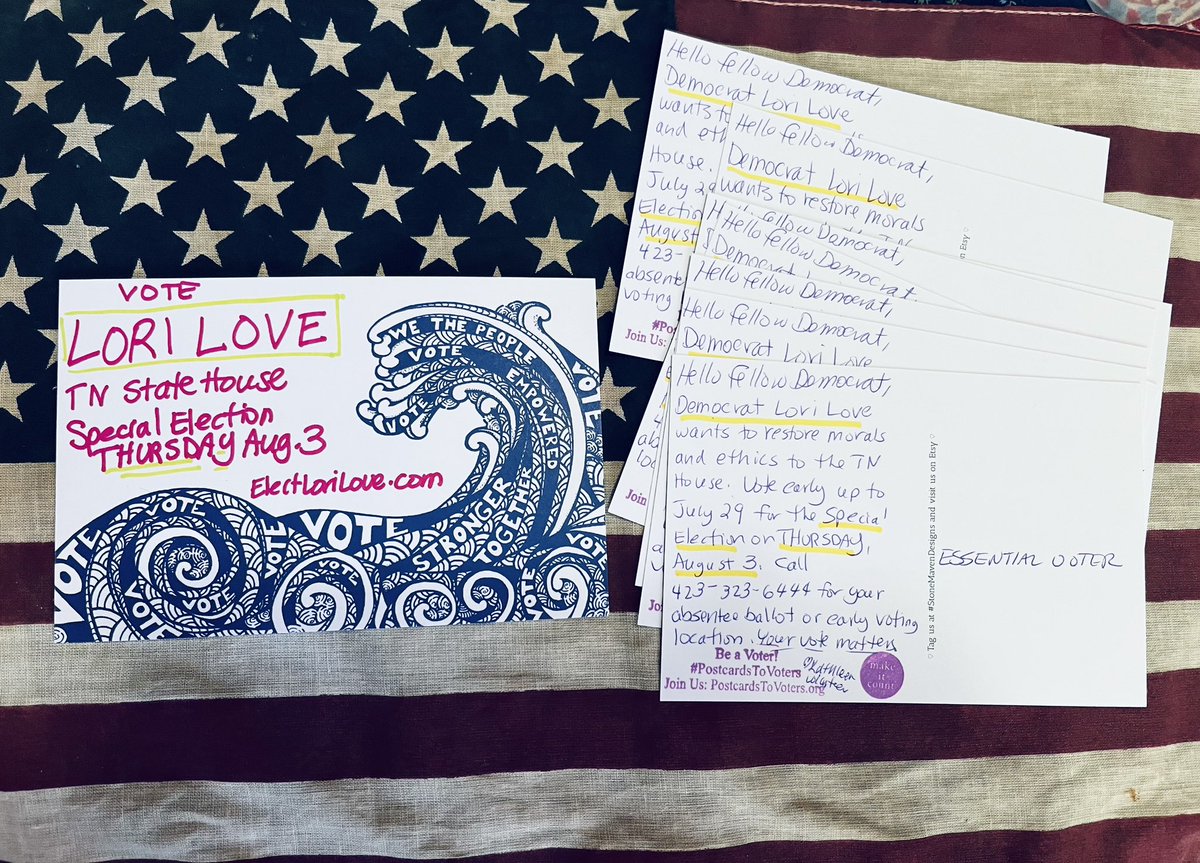 VOTE
LORI LOVE
TN State House
Special Election
THURSDAY Aug. 3
ElectLoriLove.com
WE THE PEOPLE
VOTE
EMPOWERED
VOTE
VOTE
STRONGER
TOGETHER
VOTE
VOTE
VOTE
VOTE
VOTE
VOTE
VOTE
VOTE
VOTE
Hello fellow Democrat,
Democrat Lori Love
wants to
and eth
House.
July 29
Election
August
423-
absente
voting
#Pos
Join Us:
Hello fellow Democrat,
Democrat Lori Love
wants to restore morals
n Etsy ♡
Hello fellow Democrat,
Democrat
Hello fellow Democrat,
Hello fellow Democrat,
Democrat Lori Love
Hello fellow Democrat,
Democrat Lori Love
wants to restore morals
and ethics to the TN
House. Vote early up to
July 29 for the Special
Election on THURSDAY,
August 3. Call
423-323-6444 for your
absentee ballot or early voting
location. Your vote matters
Be a Voter!
#PostcardsToVoters
Join Us: PostcardsToVoters.org
Kathleen
make
it
count
♡ Tag us at #StoneMavenDesigns and visit us on Etsy ♡
ESSENTIAL VOTER